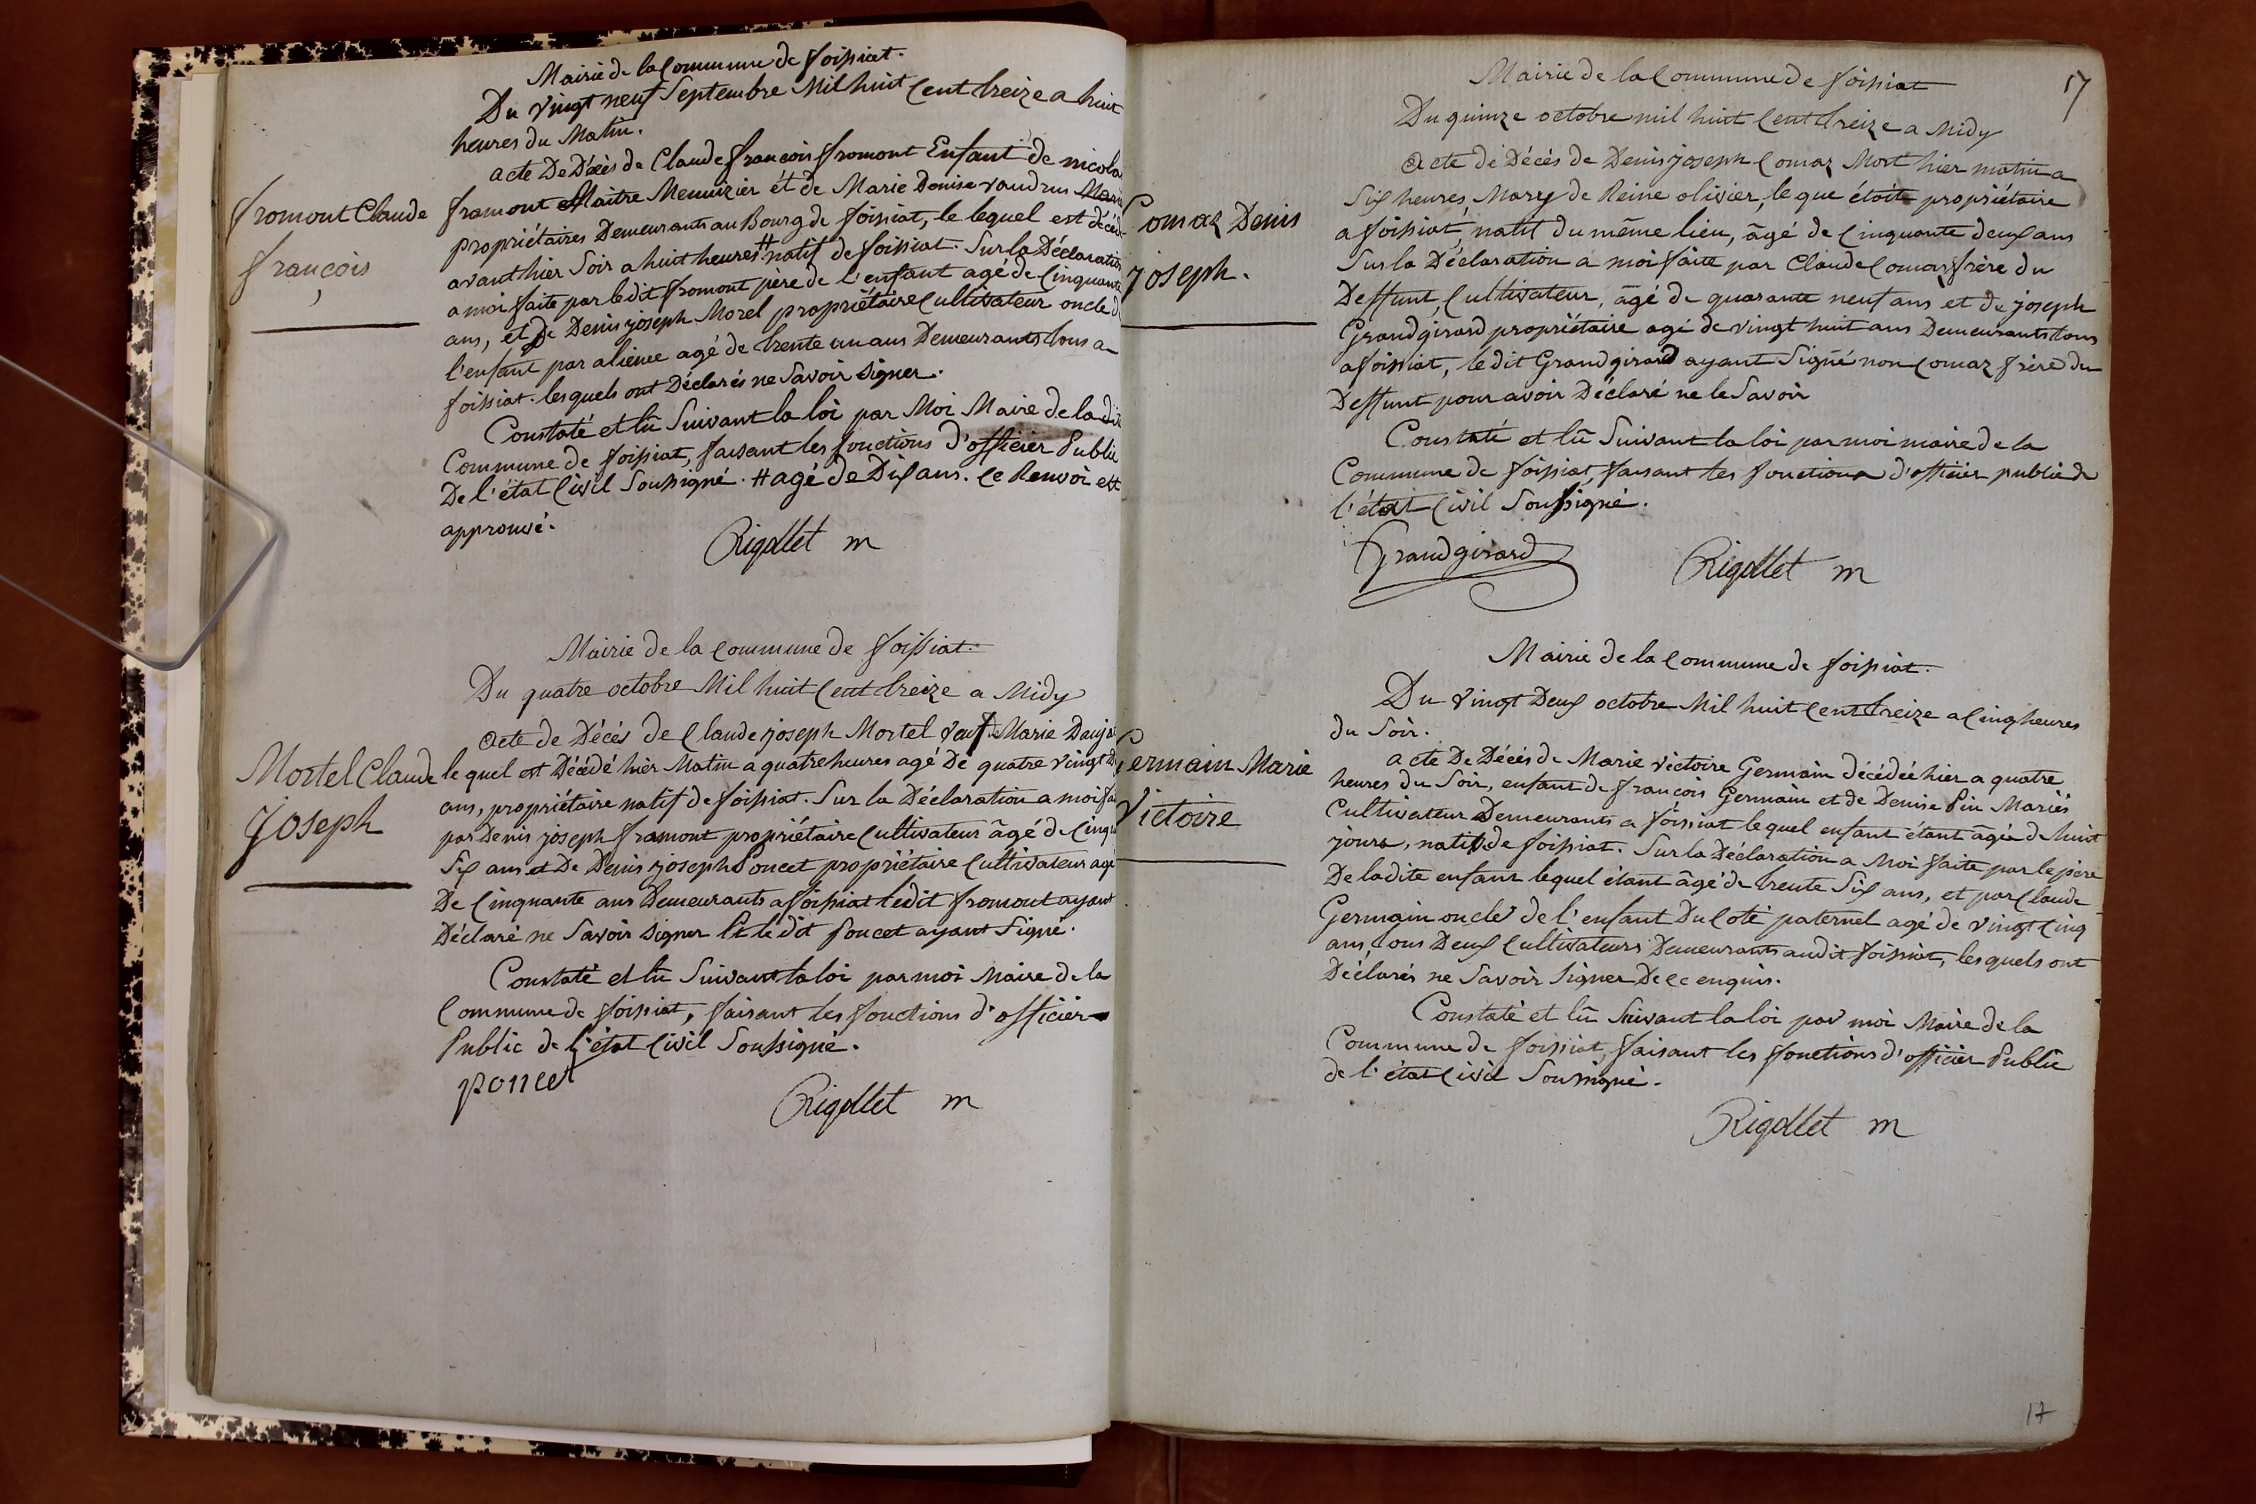 Mairie de la Commune de foissiat.
Du vingt neuf Septembre Mil huit Cent treize a huit
heures du Matin.
acte De Décès de Claude françois fromont Enfant de nicola
fromont Claude
françois
fromont Maitre Menuizier ét de Marie Denise vaudrus
propriétaires Demeurants au Bourg de foissiat, le lequel est décéd
avant hier Soir a huit heures # natif de foissiat. Sur la Déclaration
a moi faite par ledit fromont père de l'enfant agé de Cinquante
ans, et De Denis joseph Morel propriétaire Cultivateur oncle d
l'enfant par alience agé de trente un ans Demeurants tous a
foissiat. lesquels ont Déclarés ne Savoir signer.
Constaté et lû Suivant la loi par Moi Maire de la dit
Commune de foissiat, faisant les fonctions d'officier Public
De l'état Civil Soussigné. # agé de Dix ans. Ce Renvoi est
approuvé.
Rigollet m
Mairie de la Commune de foissiat.
Du quatre octobre Mil huit Cent treize a Midy
acte de Décès de Claude joseph Mortel veuf de Marie Daujat
Mortel Claude
Joseph
le quel est Décédé hièr Matin a quatre heures agé De quatre vingt D
ans, propriétaire natif de foissiat. Sur la Déclaration a moi fai
par Denis joseph fromont propriétaire Cultivateur âgé de Cinqu
Six ans et De Denis joseph Poncet propriétaire Cultivateur agé
De Cinquante ans Demeurants a foissiat ledit fromont ayant
Déclaré ne Savoir signer Et le dit Poncet ayant Signé.
Constaté et lû Suivant la loi par moi Maire de la
Commune de foissiat, faisant les fonctions d'officier
Public de l'état Civil Soussigné.
poncet
Rigollet m
17
Mairie de la Commune de foissiat
Du quinze octobre mil huit Cent treize a Midy
acte de Décès de Denis joseph Comaz Mort hier matin a
Comaz Denis
joseph.
Six heures, Mary de Reine olivier, le que étoit propriétaire
a foissiat, natif du même lieu, âgé de Cinquante deux ans
Sur la Déclaration a moi faite par Claude Comaz frère du
Deffunt, Cultivateur, âgé de quarante neuf ans et de joseph
Grandgirard propriétaire agé de vingt huit ans Demeurants tous
a foissiat, le dit Grandgirard ayant Signé non Comaz frère du
Deffunt pour avoir Déclaré ne le Savoir
Constaté et lû Suivant la loi par moi maire de la
Commune de foissiat, faisant les fonctions d'officier public de
l'état Civil Soussigné.
Grandgirard
Rigollet m
Mairie de la Commune de foissiat.
Du vingt Deux octobre Mil huit Cent treize a Cinq heures
du Soir.
acte De Décès de Marie victoire Germain décédée hier a quatre
Germain Marie
Victoire
heures du Soir, enfant de françois Germain et de Denise Pin Mariés
Cultivateur Demeurants a foissiat lequel enfant étant âgée de huit
jours, natif de foissiat. Sur la Déclaration a Moi faite par le père
De ladite enfant lequel étant âgé de trente Six ans, et par Claude
Germain oncle de l'enfant Du Coté paternel agé de vingt Cinq
ans tous Deux Cultivateurs Demeurants audit foissiat, lesquels ont
Déclarés ne Savoir Signer De ce enquis.
Constaté et lû Suivant la loi par moi Maire de la
Commune de foissiat, faisant les fonctions d'officier Public
de l'état Civil Soussigné.
Rigollet m
17